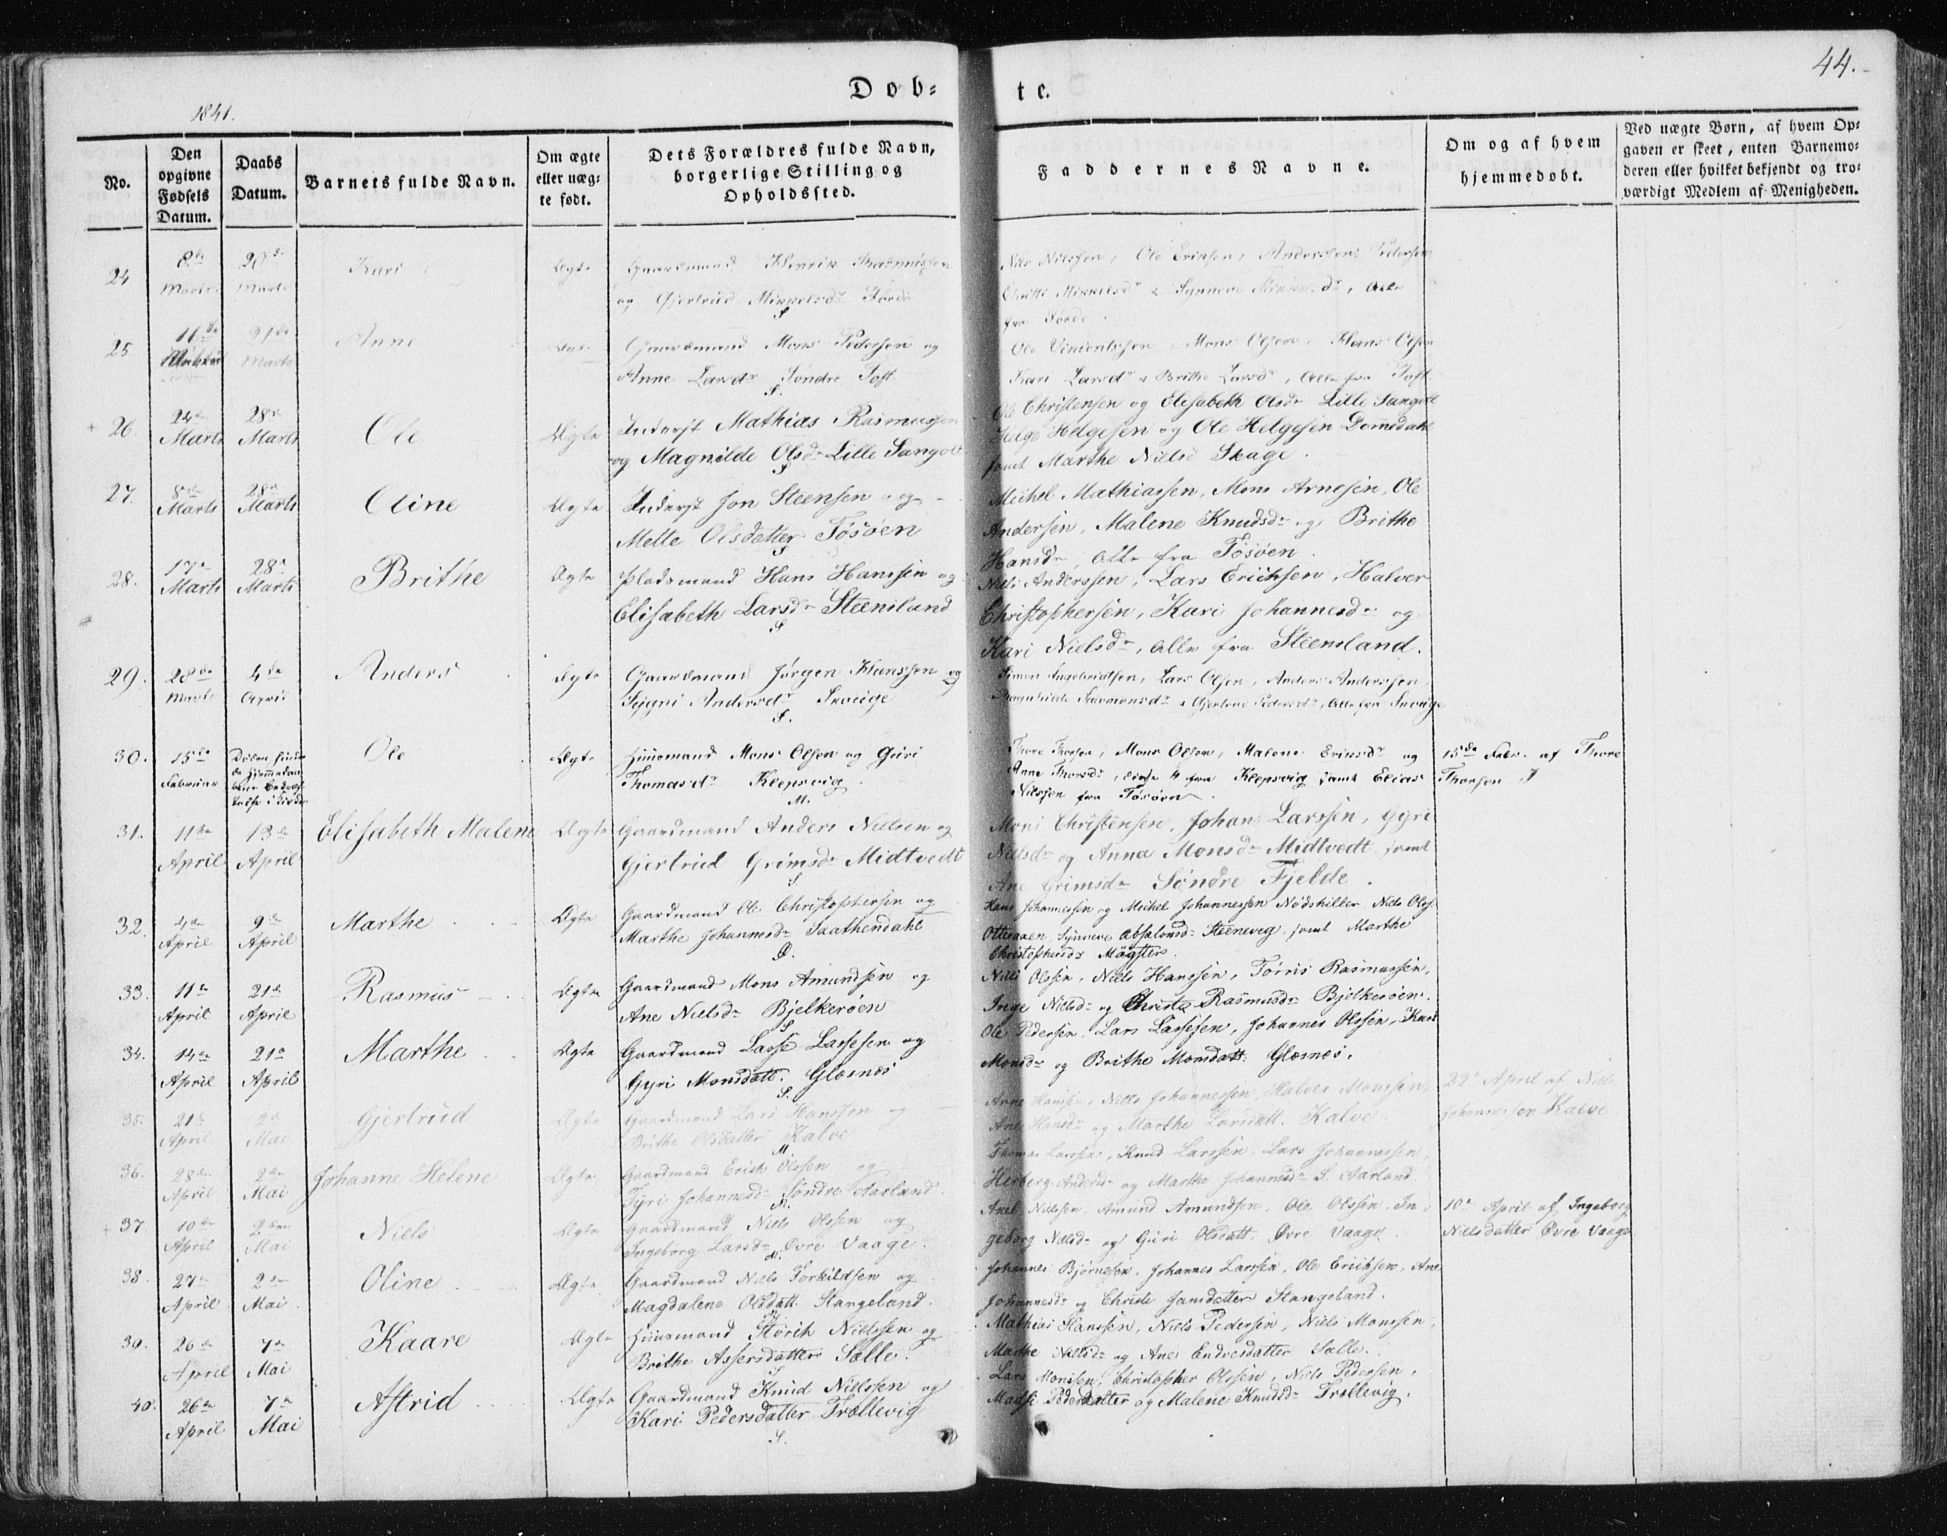 44.
1841.
Dob=
te.
No.
Den opgivne Fødsels Datum.
Daabs Datum.
Barnets fulde Navn.
Om ægte eller uæg- te født.
Dets Forældres fulde Navn, borgerlige Stilling og Opholdssted.
Faddernes Navne.
Om og af hvem hjemmedøbt.
Ved uægte Børn, af hvem Op- gaven er skeet, enten Barnemo- deren eller hvilket bekjendt og tro- værdigt Medlem af Menigheden.
24 8de Marts Marts Kari Ægte Gaardmand Henrik
og Gjertrud Mikkelsdr Førde
fra Førde.
25 Marts 21de Marts Anne Ægte Gaardmand Mons Pedersen og
Anne Larsdr Søndre Toft
S.
Ole Vincentssen, Mons Olsen, Hans Olsen
Kari Larsdr & Brithe Larsdr, Alle fra Toft.
+ 26. 24de Marts 28de Marts Ole Ægte Inderst Mathias Rasmussen
og Magnilde Olsdr Lille Sangolt
S
Ole Christensen og Elisabeth Olsdr Lille Sangolt
Helge Helgesen og Ole Helgesen Domedahl
samt Marthe Nielsd Skage.
27. 8de Marts 28de Marts Oline Ægte Inderst Jon Steensen og
Mette Olsdatter Føsøen
S
Michel Mathiassen, Mons Arnesen, Ole
Andersen, Malene Knudsdr og Brithe
Hansdr, alle fra Føsøen.
28. 17de Marts 28de Marts Brithe Ægte Pladsmand Hans Hanssen og
Elisabeth Larsdr Steensland
S
Niels Anderssen, Lars Erichsen, Halver
Christophersen, Kari Johannesdr og
Kari Nielsdr, alle fra Steensland.
29. 28de Marts 4de April Anders Ægte Gaardmand Jørgen Hanssen og
Signi Andersdr Skouge
S.
Simon Ingebrigtsen, Lars Olsen, Anders Anderssen,
Magnhilde Salomonsdr & Gjertrud Pedersdr, Alle fra Skouge
30. 15de Februar Ole Ægte Huusmand Mons Olsen og Guri
Thomasdr Klepsvig
M.
Thore Thorsen, Mons Olsen, Malene Eriksdr og
Anne Thorsdr, disse 4 fra Klepsvig samt Elias
Nilssen fra Føsøen.
15de Febr. af Thore
Thorsen
31. 11te April 13de April Elisabeth Malene Ægte Gaardmand Anders Nielsen og
Gjertrud Grimsdr Midtvedt
S.
Mons Christensen, Johan Larssen, Gyri
Nielsdr og Anna Monsdr Midtvedt samt
Ane Grimsdr Søndre Fjelde.
32. 4de April 9de April Marthe Ægte Gaardmand Ole Christophersen og
Marthe Johannesdr Saathendahl
Hans Johannessen og Michel Johannessen Nødskiller, Niels Ols.
Synneve Absalonsdr Steenevig, samt Marthe
Christophersdr Møgster.
33. 11te April 21de April Rasmus Ægte Gaardmand Mons Amundsen og
Ane Nielsdr Bjelkerøen
S
Niels Olssen, Niels Hanssen, Torris Rasmussen,
Inge Nielsdr og Christe Rasmusdr Bjelkerøen.
34. 14de April 21de April Marthe Ægte Gaardmand Lasse Lassesen og
Gyri Monsdatt. Glæsnes
S.
Ole Pedersen, Lars Lassesen, Johannes Olssen, Kari
Monsdr og Brithe Monsdatt. Glæsnes.
35. 21de April 2de Mai Gjertrud Ægte Gaardmand Lars Hanssen og
Brithe Olsdatter Kalve
M
Arne Hansen, Niels Johannessen, Halver Monssen,
Ane Hansdr og Marthe Larsdatt. Kalve.
22de April af Niels
Johannessen Kalve
36. 28de April 2den Mai Johanne Helene Ægte Gaardmand Erich Olssen og
Gyri Johannesdr Søndre Aarland.
M.
Thomas Larssen, Knud Larssen, Lars Johannessen,
Herborg Andersdr og Marthe Johannesdr S. Aarland
+ 37. 10de April 2den Mai Niels Ægte Gaardmand Niels Olssen og
Ingeborg Larsdr Øvre Vaage.
Axel Nielssen, Amund Amundsen, Ole Olssen, In-
geborg Nielsdr og Guri Olsdatt. Øvre Vaage.
10de April af Ingeborg
Nielsdatter Øvre Vaage
38. 27de April 2den Mai Oline Ægte Gaardmand Niels Torkildsen og
Magdalene Olsdatt. Stangeland.
Johannes Bjørnesen, Johannes Larssen, Ole Erichsen, Ane
Johannesdr og Christe Jansdatter Stangeland.
39. 26de April 7de Mai Kaare Ægte Huusmand Størch Nielssen og
Brithe Assersdatter Salle.
S
Mathias Hanssen, Niels Pedersen, Niels Monssen,
Marthe Nielsdr og Ane Endresdatter Salle.
40. 26de April 7de Mai Astrid Ægte Gaardmand Knud Nielssen og
Kari Pedersdatter Trællevig
S.
Lars Monssen, Christopher Olssen, Niels Pedersen,
Madsi Pedersdatter og Malene Knudsdr Trællevig.